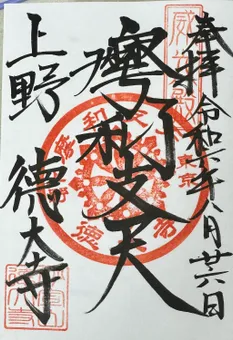 奉拝 令和六年八月廿六日
摩利支天
上野 徳大寺